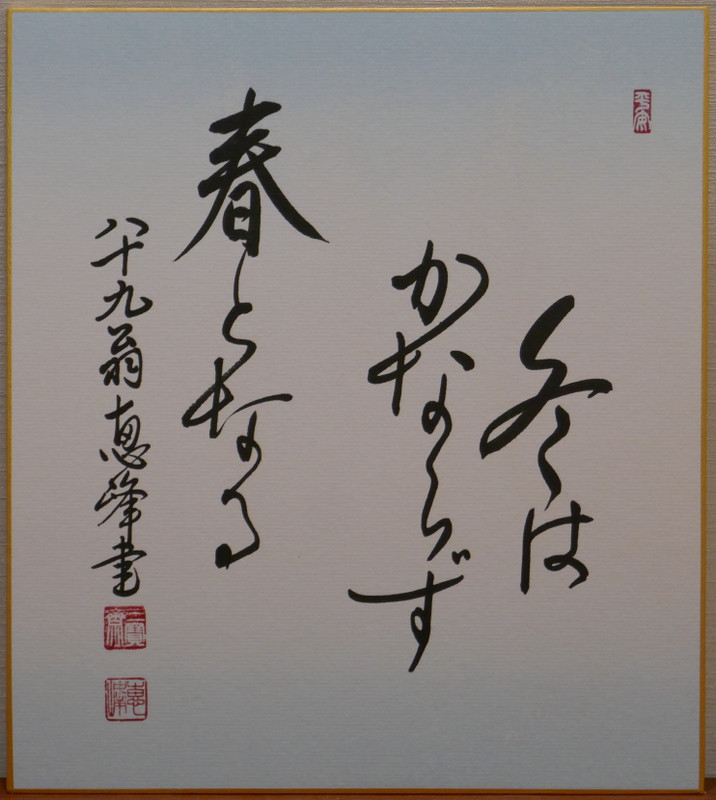 冬は
かならず
春となる
八十九翁恵峰書
平安